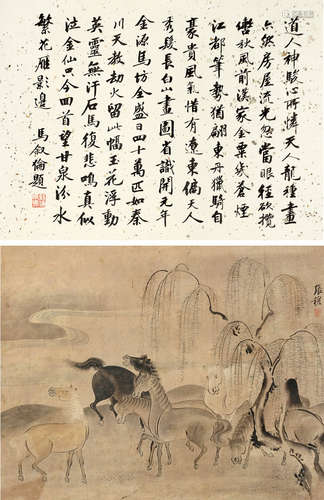 道人神駿心所憐天人龍種畫
亦然房星流光忽當眼徑欲攬
轡秋風前漢家金粟幾蒼煙
江都筆勢猶翩翩東丹獵騎自
豪貴風氣惜有遼東偏天人
秀發長白山畫圖省識開元年
金源馬坊全盛日四十萬匹如秦
川天教劫火留此幅玉花浮動
英靈無汗石馬復悲鳴真似
泣金仙只今回首望甘泉汾水
繁花雁影邊 馬叙倫題
張穆